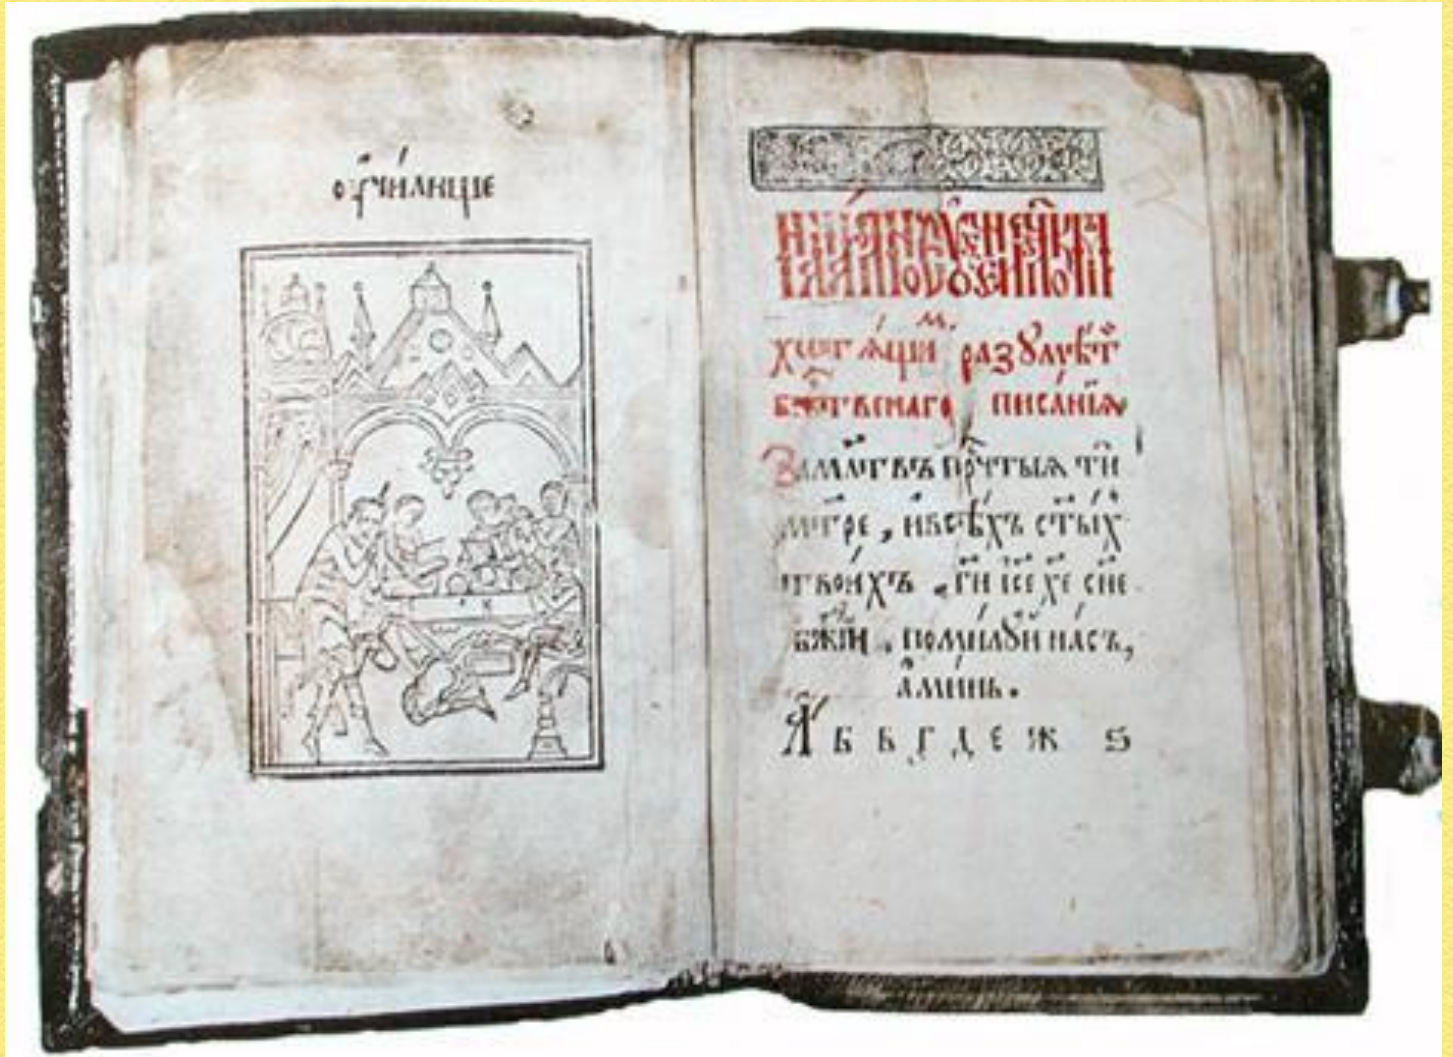 ѹ҆чи́лище
хотѧ́щиⷨ разꙋмѣ́тⷩ҇
бжⷭ҇твенаго писа́нїѧ
За мл҃твъ прⷱ҇тыѧ ти̂
мт҃ре, и҆ всѣ́хъ ст҃ы́х
твои́хъ. гⷭ҇и і҆се хе сн҃е
бж҃їи. поми́лꙋй на́съ,
а҆ми́нь.
А҆ б в г д е ж ѕ